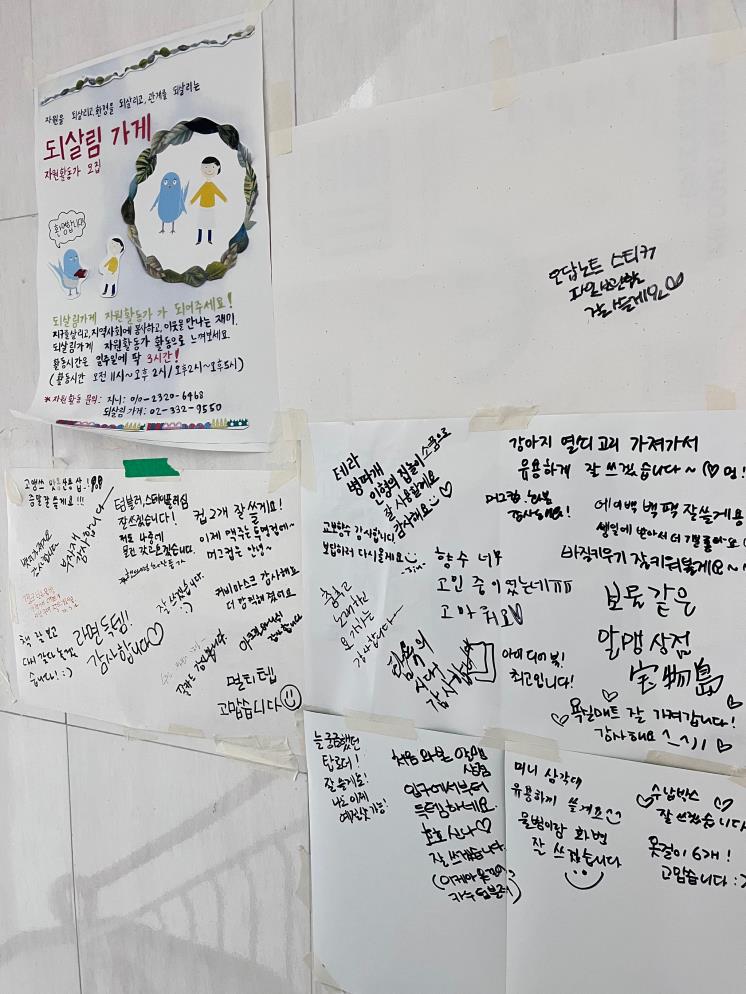 자원을 되살리고, 환경을 되살리고, 관계를 되살리는
되살림 가게
자원활동가 모집
환영합니다!
되살림가게 자원활동가가 되어주세요!
지구를살리고,지역사회에 봉사하고, 이웃을 만나는 재미.
되살림가게 자원활동가 활동으로 느껴보세요.
활동시간은 일주일에 딱 3시간!
(활동시간 오전 11시~오후 2시/오후2시~오후5시)
*자원활동 문의: 지니: 010-2320-6468
되살림 가게: 02-332-9550
오답노트 스티커
잘 쓸게요
정말 잘 쓸게요!!!
부직재
감사합니다
텀블러,
잘쓰겠습니다!
저도 나중에
물건 갖고 오겠습니다.
컵 2개 잘쓸게요!
이제 맥주는 투명컵에~
머그컵는 안녕~
커비마스크 감사해요
더 깜찍해졌어요
잘 쓰겠습니다.
:)
책 잘 보고
다시 갖다 놓겠
습니다! :)
라면득템!
감사합니다♡
멀티텝
고맙습니다
테라
병따개
인형의 집놀이 소품으로
잘 사용할게요
감사해요
교보향수 감사합니다
보답하러 다시올게요
향수 너무
고민 중이었는데ㅠㅠ
고마워요♡
춤추고
노래하고
감사합니다~
믿음의
시대
감사합니다
강아지 열쇠고리 가져가서
유용하게 잘 쓰겠습니다~
머그컵
감사해요!
에이백 백팩 잘쓸게용
바질키우기 잘키워볼게요~
보물같은
알맹상점
宝物島
아이디어 북!
최고입니다!
욕실매트 잘 가져갑니다!
감사해요 ^_^))
늘 궁금했던
타로더!
잘 쓸게요!
나도 이제
가능!
처음 와본 알맹
상점
입구에서부터
득템하네요.
호호 신나♡
잘 쓰겠습니다.
미니 삼각대
유용하게 쓸겨요
물병이랑 화병
잘 쓰겠습니다
수납박스
잘 쓰겠습니다
옷걸이 6개!
고맙습니다 :)